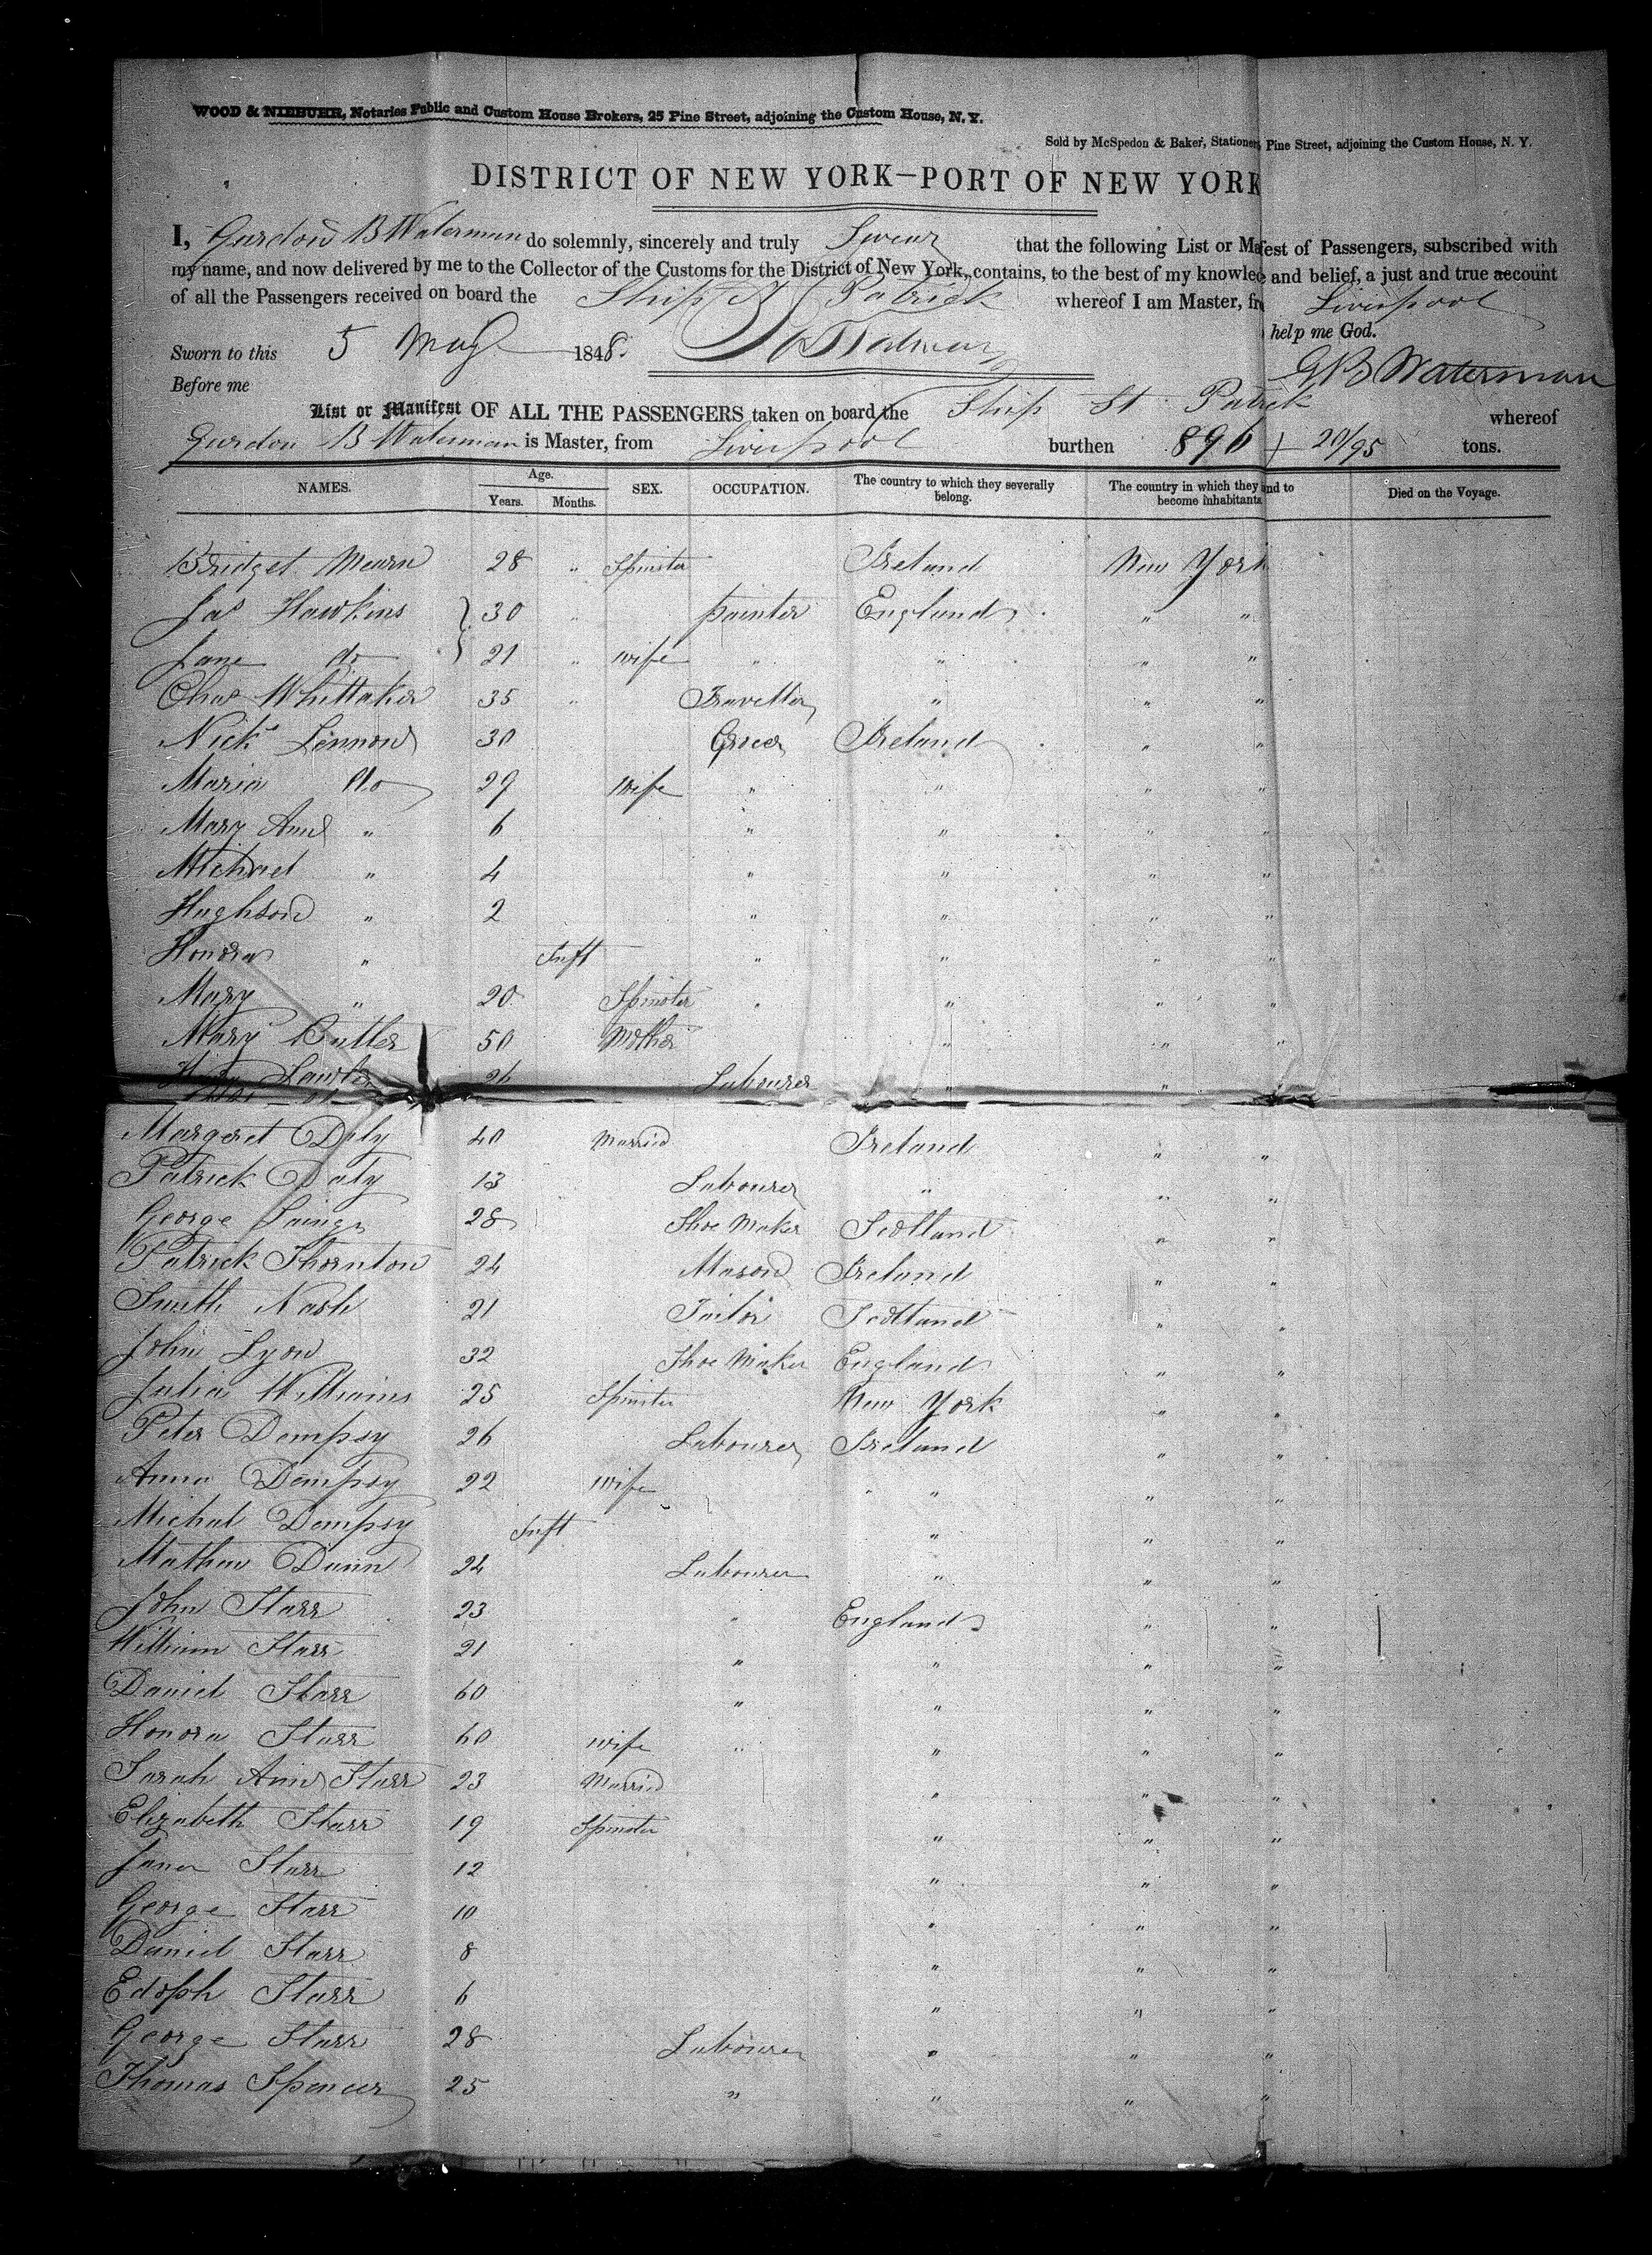 WOOD & NIEBUHR, Notaries Public and Custom House Brokers, 25 Pine Street, adjoining the Custom House, N. Y.
Sold by McSpedon & Baker, Stationers, Pine Street, adjoining the Custom House, N. Y.
DISTRICT OF NEW YORK—PORT OF NEW YORK
I, Gurdon B Waterman do solemnly, sincerely and truly Swear that the following List or Mafest of Passengers, subscribed with
my name, and now delivered by me to the Collector of the Customs for the District of New York, contains, to the best of my knowlee and belief, a just and true account
of all the Passengers received on board the Ship St Patrick whereof I am Master, fr Liverpool
help me God.
Sworn to this 5 May 1848.
G B Waterman
Before me
List or Manifest OF ALL THE PASSENGERS taken on board the Ship St Patrick whereof
Gurdon B Waterman is Master, from Liverpool burthen 896 + 20/95 tons.
NAMES. Age. Years. Months. SEX. OCCUPATION. The country to which they severally belong. The country in which they nd to become inhabitants Died on the Voyage.
Bridget Mearn 28 " Spinster Ireland New York
Jas Hawkins 30 " painter England " "
Jane do 21 " wife " " " "
Chas Whittaker 35 " Traveller " " "
Nichs Lennon 30 Grocer Ireland " "
Maria do 29 wife " " " "
Mary Ann " 6 " " " "
Michael " 4 " " " "
Hughson " 2 " " " "
Honora " Inft " " " "
Mary " 20 Spinster " " " "
Mary Butler 50 Mother " " "
26 Labourer " " "
Margeret Daly 40 Married Ireland " "
Patrick Daly 13 Labourer " " "
George Laing 28 Shoe Maker Scotland " "
Patrick Thornton 24 Mason Ireland " "
Smith Nash 21 Tailor Scotland " "
John Lyon 32 Shoe Maker England " "
Julia Williams 25 Spinster New York " "
Peter Dempsy 26 Labourer Ireland " "
Anna Dempsy 22 wife " " "
Michal Dempsy Inft " " "
Mathew Dunn 24 Labourer " " "
John Starr 23 " England " "
William Starr 21 " " " "
Daniel Starr 60 " " " "
Honora Starr 60 wife " " " "
Sarah Ann Starr 23 Married " " "
Elizabeth Starr 19 Spinster " " "
Jane Starr 12 " " "
George Starr 10 " " "
Daniel Starr 8 " " "
Edoph Starr 6 " " "
George Starr 28 Labourer " " "
Thomas Spencer 25 " " " "